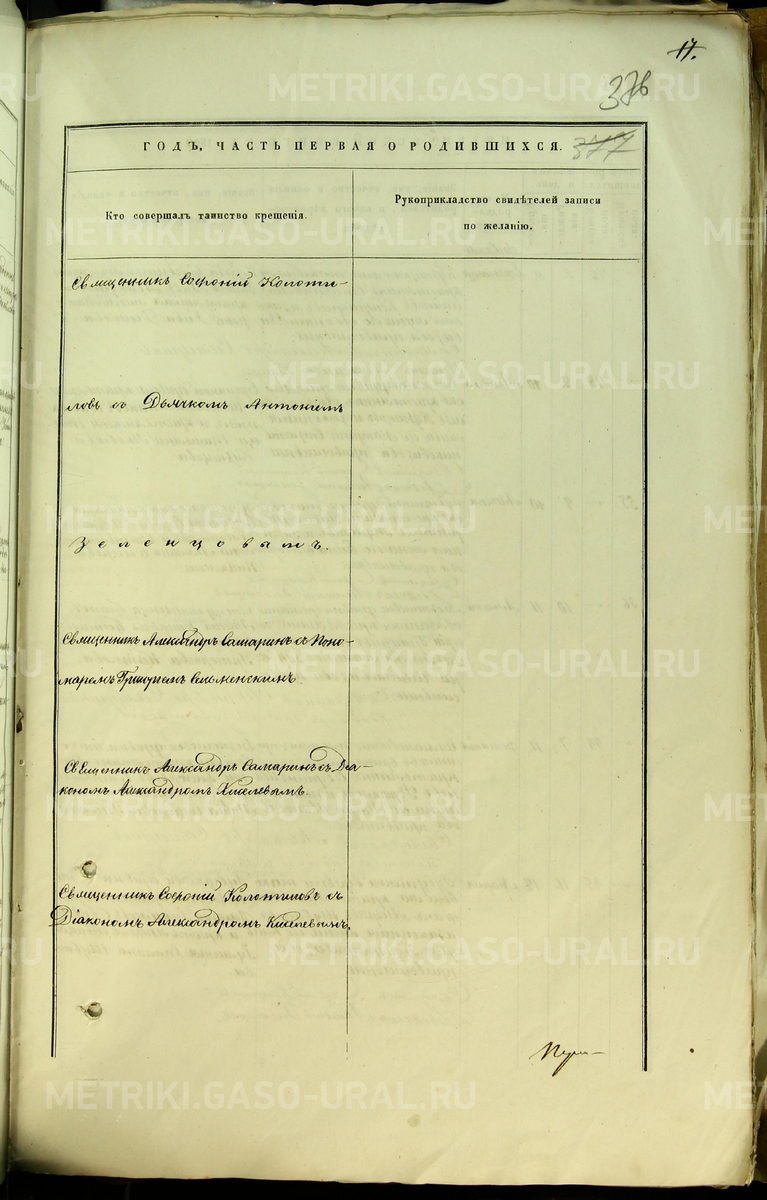 17.
378
377
ГОДЪ, ЧАСТЬ ПЕРВАЯ О РОДИВШИХСЯ.
Кто совершалъ таинство крещенія.
Рукоприкладство свидѣтелей записи
по желанію.
Священникъ Софроній Колоти-
ловъ съ Дьячкомъ Антоніемъ
Зеленцовымъ.
Священникъ Александръ Самаринъ съ Поно-
маремъ
Священникъ Александръ Самаринъ съ Діа-
кономъ Александромъ Киселевымъ.
Священникъ Софроній Колотиловъ съ
Діакономъ Александромъ Киселевымъ.
METRIKI.GASO-URAL.RU